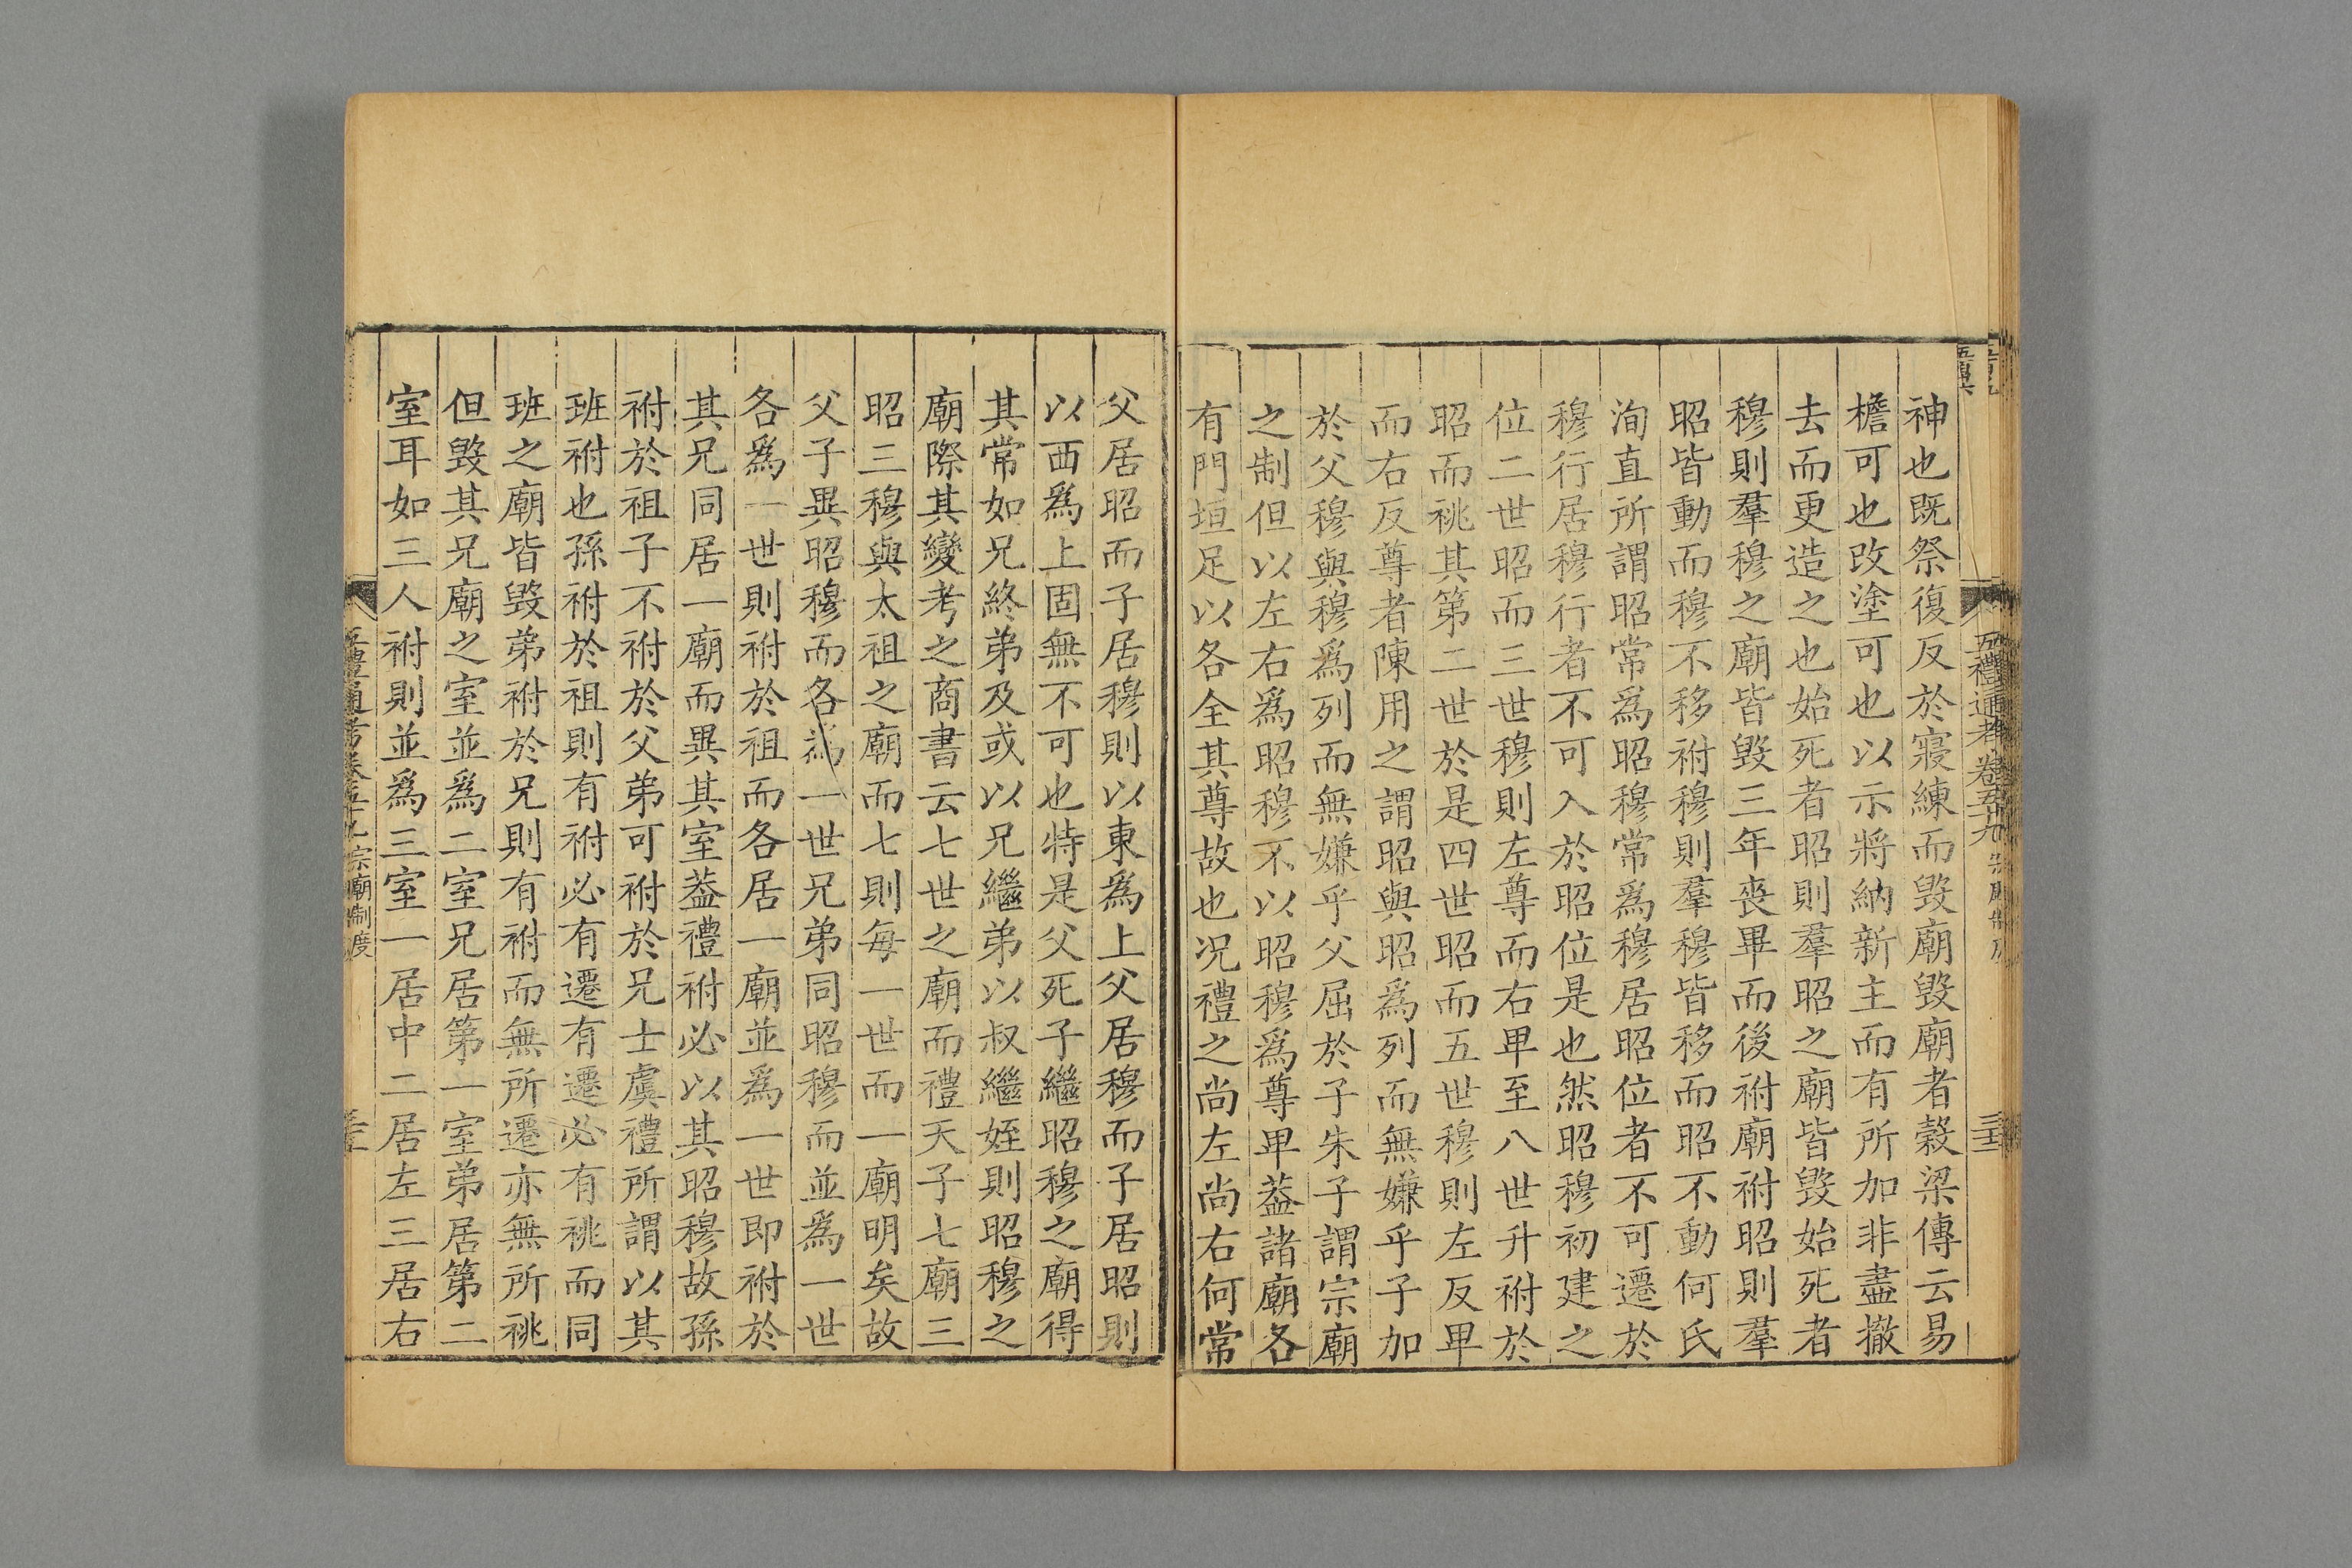 神也既祭復反於寢練而毀廟毀廟者穀梁傳云易
檐可也改塗可也以示將納新主而有所加非盡撤
去而更造之也始死者昭則羣昭之廟皆毀始死者
穆則羣穆之廟皆毀三年喪畢而後祔廟祔昭則羣
昭皆動而穆不移祔穆則羣穆皆移而昭不動何氏
洵直所謂昭常爲昭穆常爲穆居昭位者不可遷於
穆行居穆行者不可入於昭位是也然昭穆初建之
位二世昭而三世穆則左尊而右卑至八世升祔於
昭而祧其第二世於是四世昭而五世穆則左反卑
而右反尊者陳用之謂昭與昭爲列而無嫌乎子加
於父穆與穆爲列而無嫌乎父屈於子朱子謂宗廟
之制但以左右爲昭穆不以昭穆爲尊卑葢諸廟各
有門垣足以各全其尊故也況禮之尚左尚右何常
五禮通考卷五十九
父居昭而子居穆則以東爲上父居穆而子居昭則
以西爲上固無不可也特是父死子繼昭穆之廟得
其常如兄終弟及或以兄繼弟以叔繼姪則昭穆之
廟際其變考之商書云七世之廟而禮天子七廟三
昭三穆與太祖之廟而七則每一世而一廟明矣故
父子異昭穆而各爲一世兄弟同昭穆而並爲一世
各爲一世則祔於祖而各居一廟並爲一世即祔於
其兄同居一廟而異其室葢禮祔必以其昭穆故孫
祔於祖子不祔於父弟可祔於兄士虞禮所謂以其
班祔也孫祔於祖則有祔必有遷有遷必有祧而同
班之廟皆毀弟祔於兄則有祔而無所遷亦無所祧
但毀其兄廟之室並爲二室兄居第一室弟居第二
室耳如三人祔則並爲三室一居中二居左三居右
宗廟制度